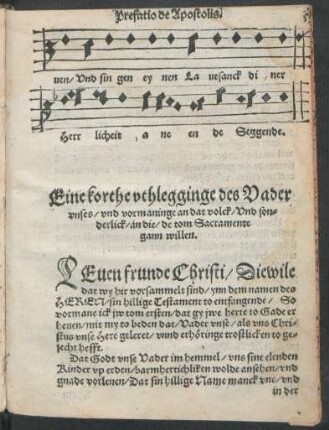 Prefatio de Apostolis.
uen/ Vnd sin gen ey nen La uesanck di ner
Herr licheit, a ne en de Seggende.
Eine korthe vthlegginge des Vader
vnses/ vnd vormaninge an dat volck/ Vnd son-
derlick/ an die/ de tom Sacramente
gann willen.
LEuen frunde Christi/ Diewile
dat wy hir vorsammelt sind/ ynn dem namen des
HEREN/ sin hillige Testament to entfangende/ So
vormane ick jw tom ersten/ dat gy jwe herte to Gade er
heuen/ mit my to beden dat/ Vader vnse/ als vns Chri-
stus vnse Here geleret/ vnnd erhöringe trostlicken to ge-
secht hefft.
Dat Godt vnse Vader im hemmel/ vns sine elenden
Kinder vp erden/ barmhertichliken wolde ansehen/ vnd
gnade vorlenen/ Dat sin hillige Name manck vns/ vnd
in der